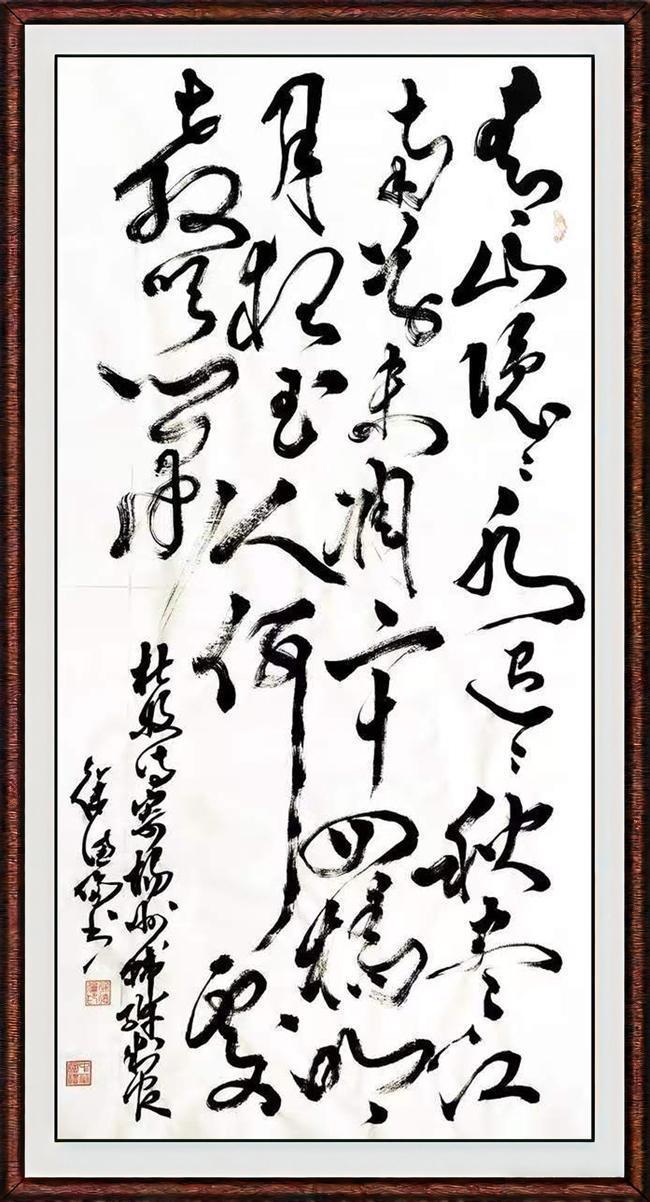 青山隐〻水迢〻秋尽江
南草未凋二十四橋明
月夜玉人何處
教吹箫
杜牧诗寄揚州韩绰判官
徐德 书